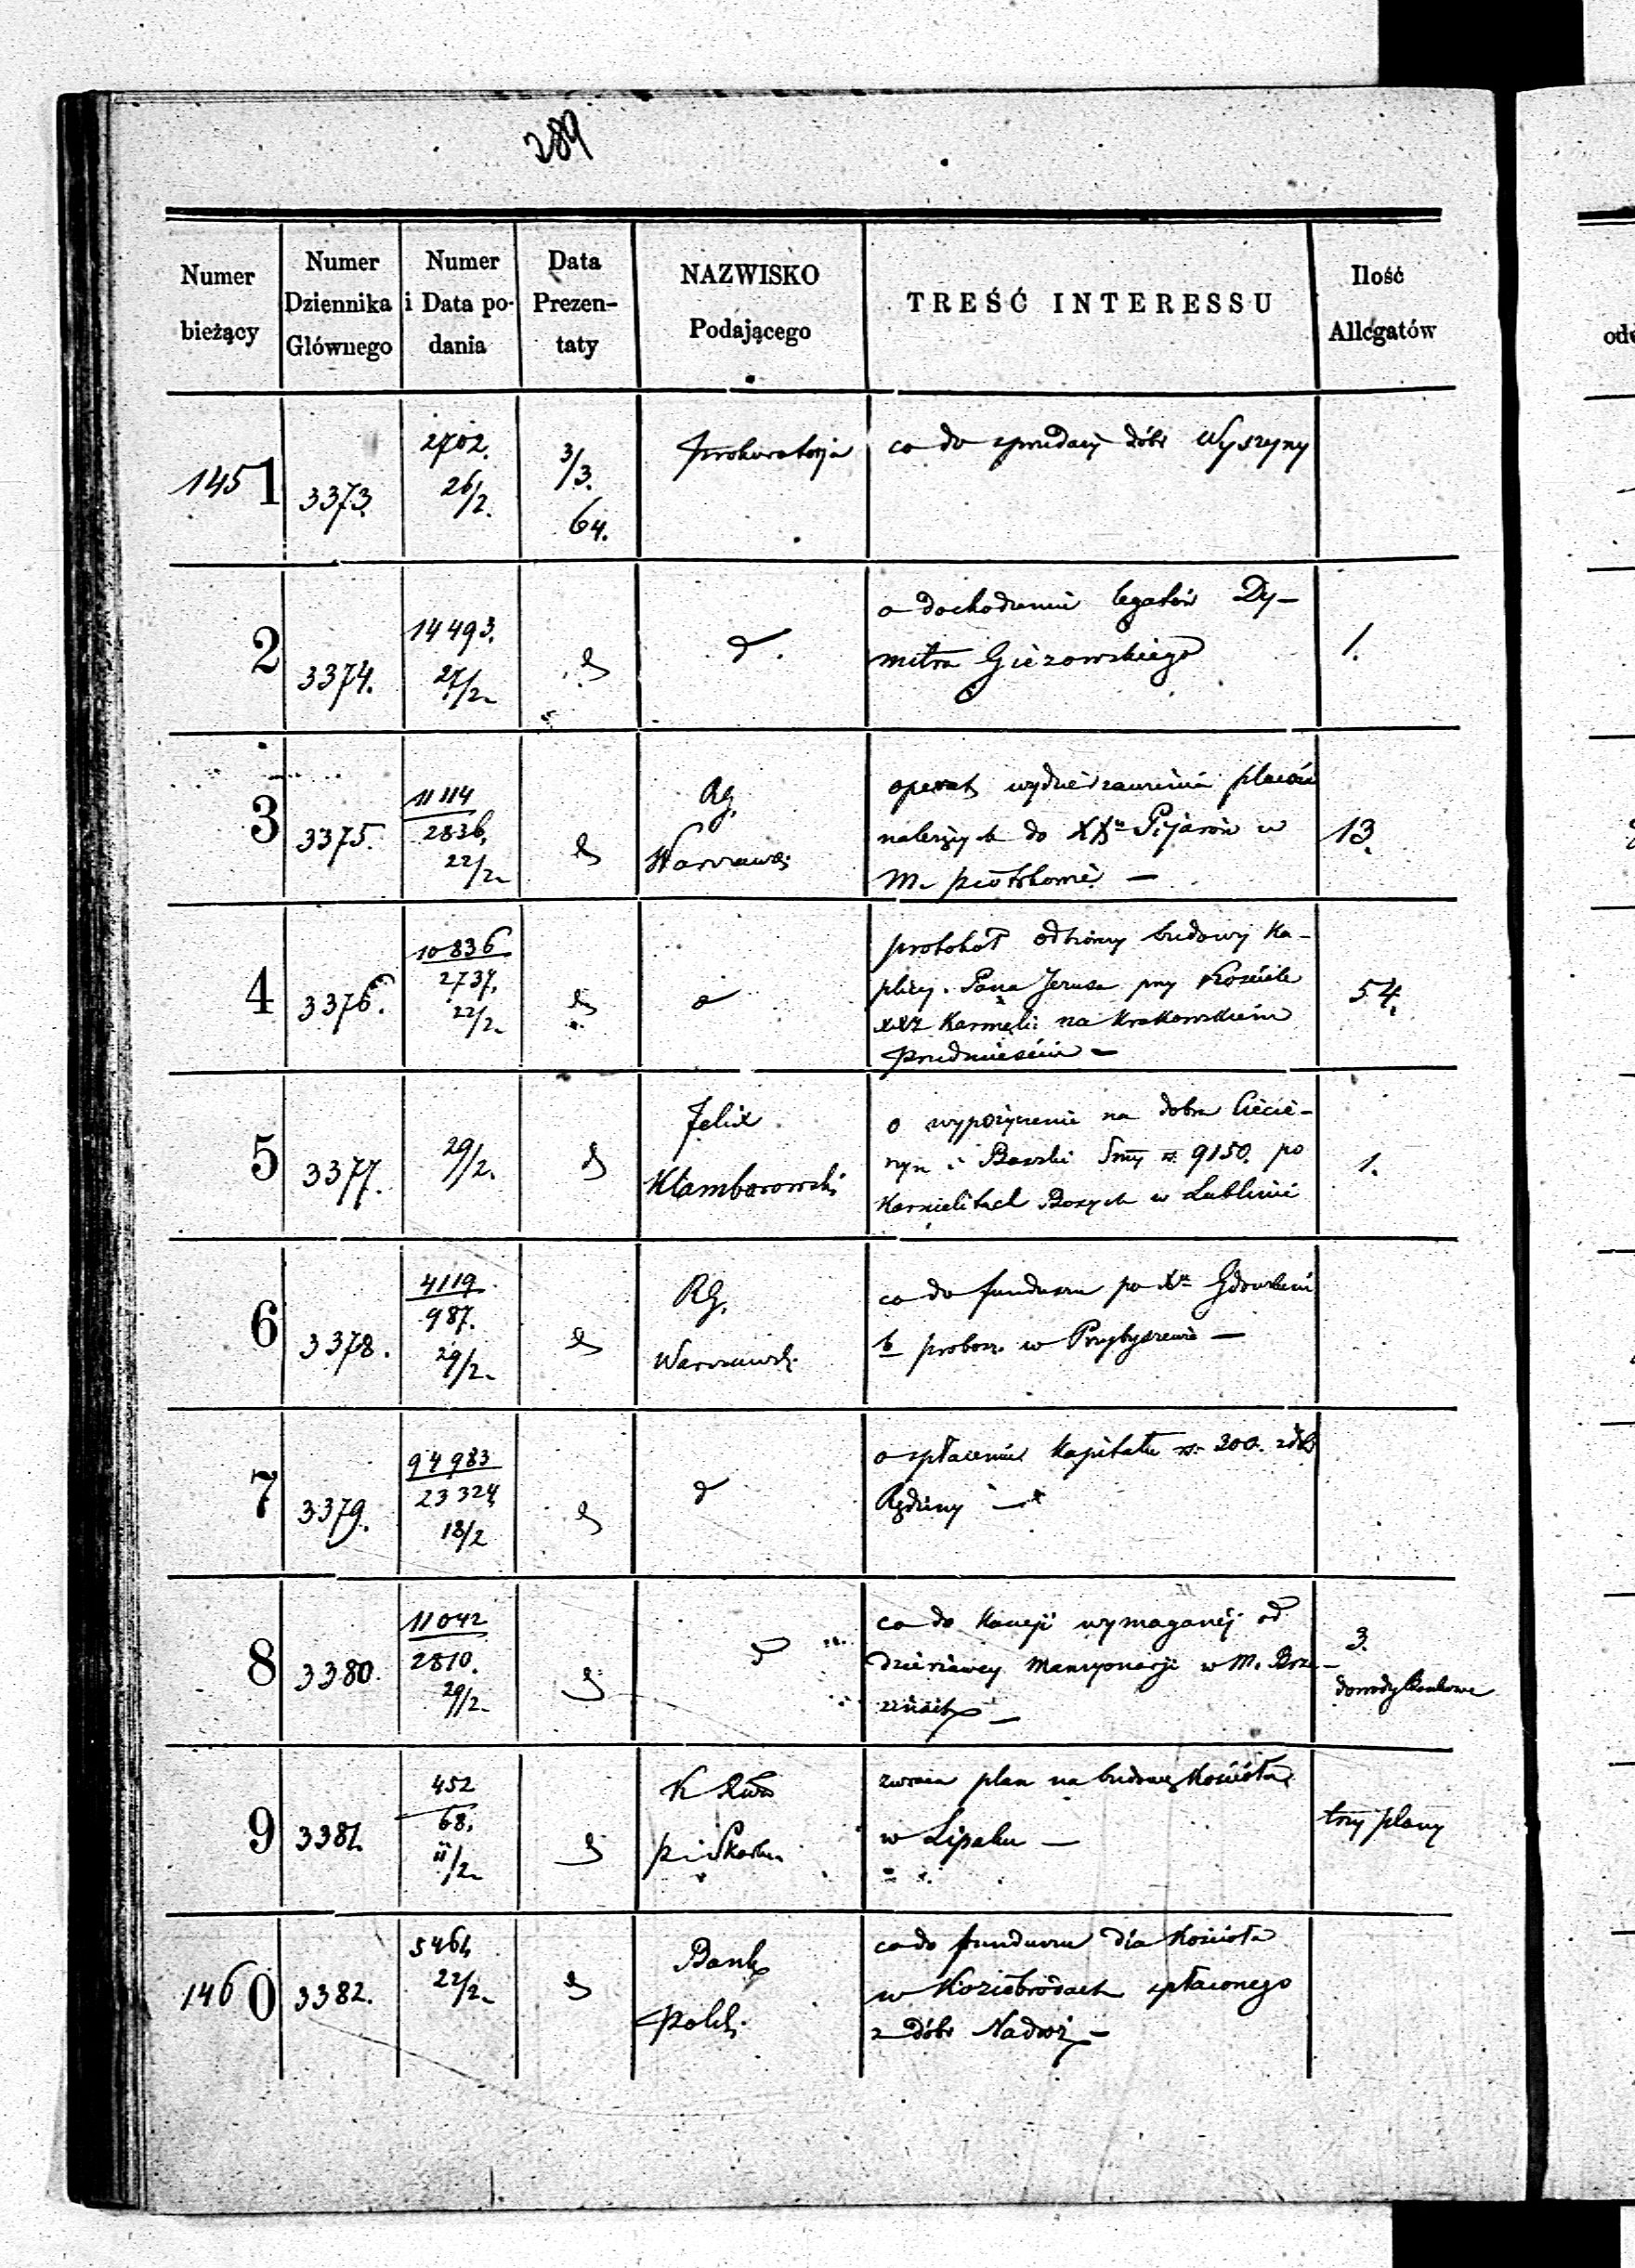 289
Numer bieżący
Numer Dziennika Głównego
Numer i Data podania
Data Prezentaty
NAZWISKO Podającego
TREŚĆ INTERESSU
Ilość Allegatów
1451
3373.
2702.
26/2.
3/3.
64.
Prokuratorja
co do sprzedaży dóbr Wyszyny
2
3374.
14493.
27/2.
d.
o dochodzenie legatów Dy-
mitra Giezowskiego
1.
3
3375.
11114
2836.
22/2.
RG.
Warszaws.
operat wydzierżawienia placów
należących do XX Pijarów w
M. Piotrkowie —
13.
4
3376.
10836
2737.
22/2.
protokół odbiorczy budowy Ka-
plicy Pana Jezusa przy Kościele
XXZ Karmeli: na Krakowskiem
Przedmieściu —
54.
5
3377.
29/2.
Felix
Kłamborowski
o wypożyczenie na dobra Ciecie-
rzyn i Barski Smy rs. 9150. po
Karmelitach Bosych w Lublinie
1.
6
3378.
4119
987.
29/2.
RG.
Warszawsk.
co do funduszu po X
b probosz. w Przybyszewie —
7
3379.
94983
23324
18/2
d
o spłacenie Kapitału rs. 300. z dób
Rędziny —
8
3380.
11042
2810.
29/2.
d
co do Kaucji wymaganej od
dzierżawcy Mansyonarji w M. Brze-
zinach —
3.
dowody Bankowe
9
3381.
452
68.
11/2.
K Rzdo
P i Skarbu
zwraca plan na budowę Kościoła
w Lipsku —
trzy plany
1460
3382.
5461.
22/2.
Bank
Polsk.
co do funduszu dla Kościoła
w Koziebrodach spłaconego
z dóbr —